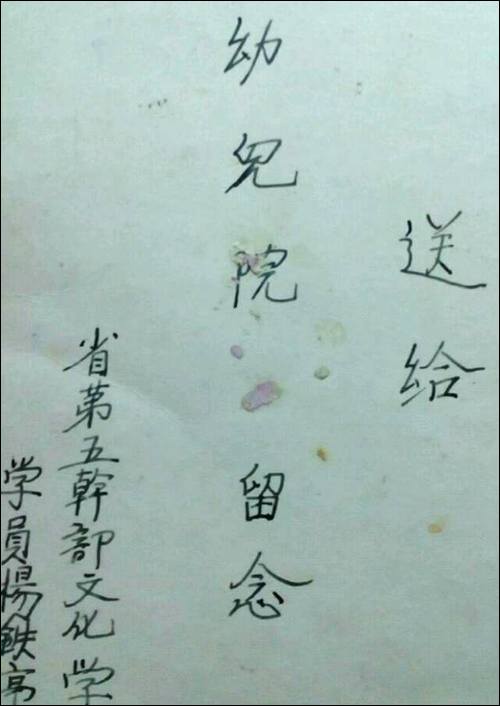 送给
幼兒院留念
省第五幹部文化学
学員楊鉄亭